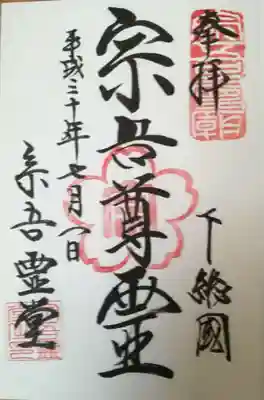 奉拝
下総國
宗吾尊霊
平成三十年七月一日
宗吾霊堂